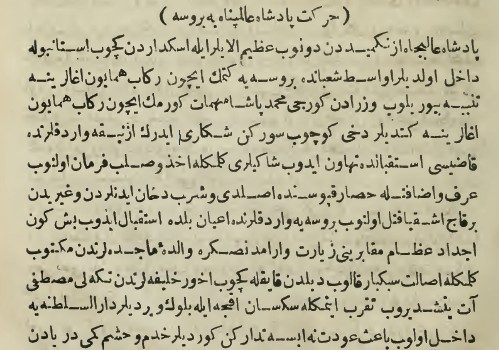 ( حركت پادشاه عالمپناه به بروسه )
پادشاه عاليجاه ازنكميددن دونوب عظيم آلايلر ايله اسكداردن كچوب استانبوله
داخل اولديلر اواسط شعبانده بروسه يه كتمك ايچون ركاب همايون آغالرينه
تنبيه بيوريلوب وزرادن كورجى محمد پاشا مهمات كورمك ايچون ركاب همايون
آغالرينه كتديلر دخى كوچوب سوركن شكارى ايدرك ازنيقه واردقلرنده
قاضيسى استقبالنده تهاون ايدوب شاكيلرى كلمكله اخذ وصلب فرمان اولنوب
عرف واضافتله حصار قپوسنده اصلدى وشرب دخان ايدنلردن وغيريدن
برقاج اشقيا قتل اولنوب بروسه يه واردقلرنده اعيان بلده استقبال ايدوب بش كون
اجداد عظام مقابرينى زيارت وآرامدنصكره والدهٔ ماجده لرندن مكتوب
كلمكله اصالت سبكبار قالوب ديلدن قايقله كچوب اخور خليفه لرندن تكه لى مصطفى
آت يتشديروب تقرب ايتمكله سكسان اقچه ايله بلوك ويرديلر دارالسلطنه يه
داخل اولوب باعث عودت نه ايسه تداركن كورديلر خدم وحشم كمى دريادن